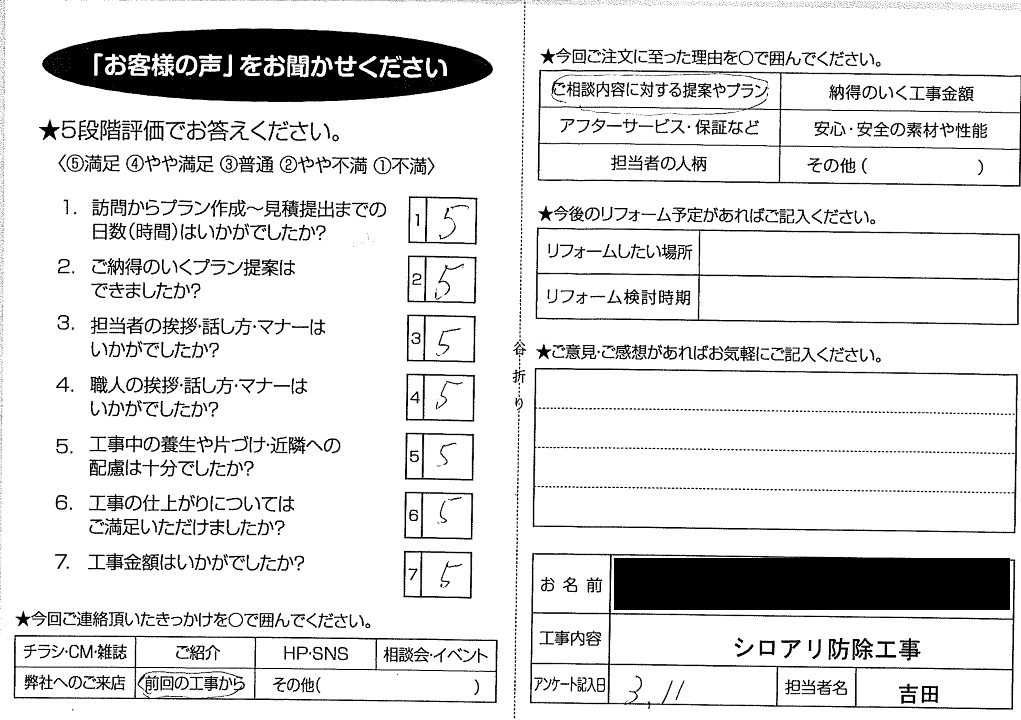 「お客様の声」をお聞かせください
★5段階評価でお答えください。
〈⑤満足 ④やや満足 ③普通 ②やや不満 ①不満〉
1. 訪問からプラン作成～見積提出までの
日数(時間)はいかがでしたか?
1 5
2. ご納得のいくプラン提案は
できましたか?
2 5
3. 担当者の挨拶・話し方・マナーは
いかがでしたか?
3 5
4. 職人の挨拶・話し方・マナーは
いかがでしたか?
4 5
5. 工事中の養生や片づけ・近隣への
配慮は十分でしたか?
5 5
6. 工事の仕上がりについては
ご満足いただけましたか?
6 5
7. 工事金額はいかがでしたか?
7 5
★今回ご連絡頂いたきっかけを〇で囲んでください。
チラシ・CM・雑誌 ご紹介 HP・SNS 相談会・イベント
弊社へのご来店 前回の工事から その他( )
谷折り
★今回ご注文に至った理由を〇で囲んでください。
ご相談内容に対する提案やプラン 納得のいく工事金額
アフターサービス・保証など 安心・安全の素材や性能
担当者の人柄 その他( )
★今後のリフォーム予定があればご記入ください。
リフォームしたい場所
リフォーム検討時期
★ご意見・ご感想があればお気軽にご記入ください。
お名前
工事内容 シロアリ防除工事
アンケート記入日 3,11 担当者名 吉田